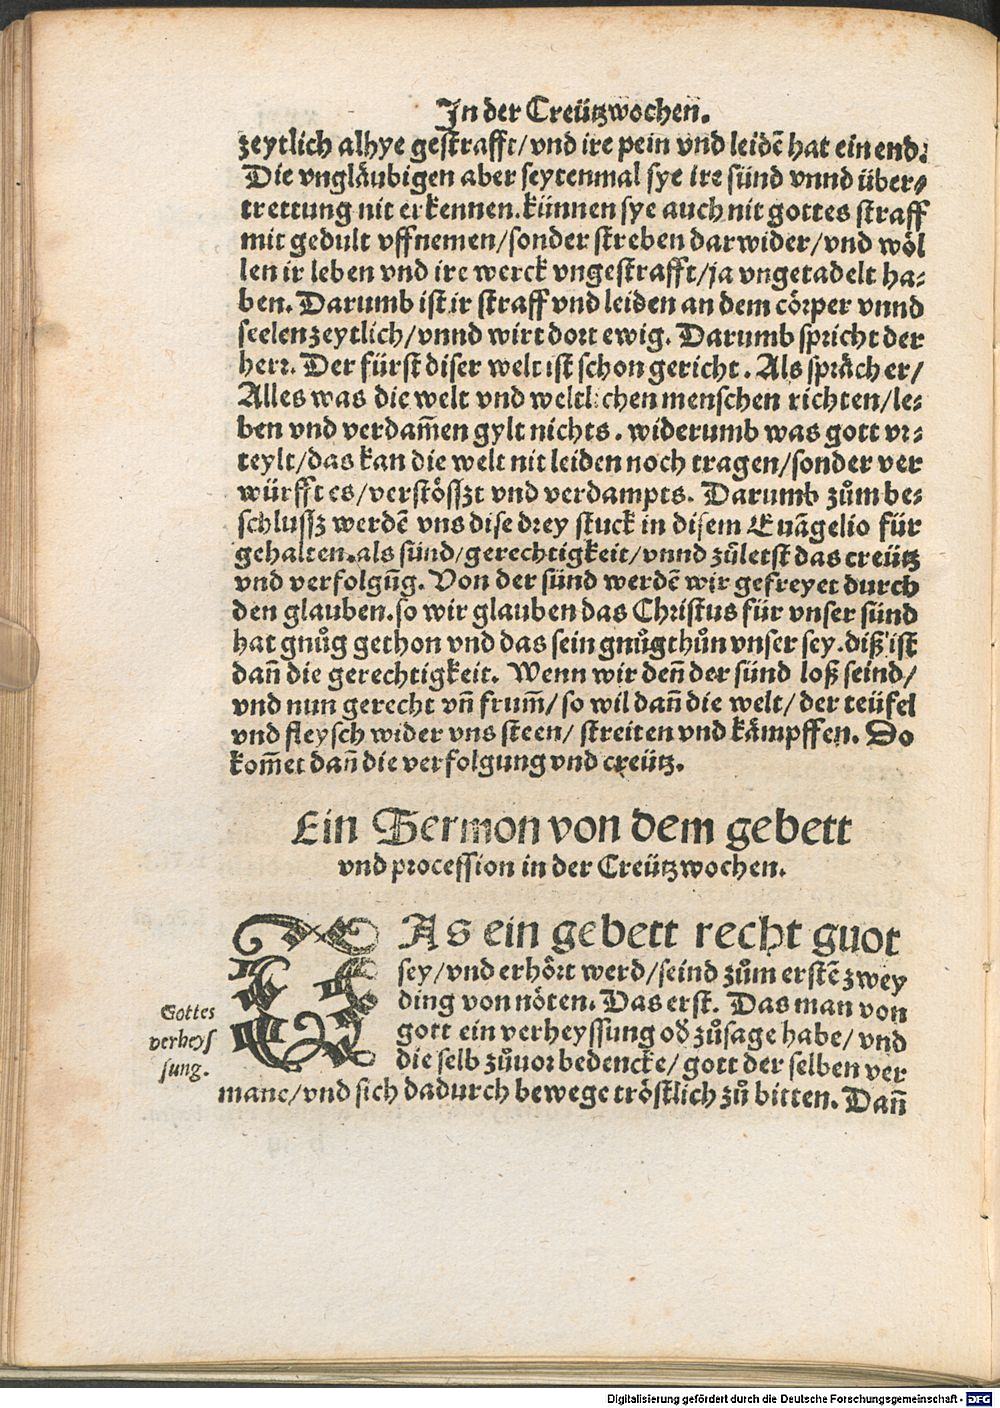 In der Creützwochen.
zeytlich alhye gestrafft/ vnd ire pein vnd leidē hat ein end.
Die vngläubigen aber seytenmal sye ire sünd vnnd über-
trettung nit erkennen. künnen sye auch nit gottes straff
mit gedult vffnemen/ sonder streben darwider/ vnd wöl
len ir leben vnd ire werck vngestrafft/ ja vngetadelt ha-
ben. Darumb ist ir straff vnd leiden an dem cörper vnnd
seelen zeytlich/ vnnd wirt dort ewig. Darumb spricht der
herr. Der fürst diser welt ist schon gericht. Als spräch er/
Alles was die welt vnd weltlichen menschen richten/ le-
ben vnd verdam̃en gylt nichts. widerumb was gott vr-
teylt/ das kan die welt nit leiden noch tragen/ sonder ver
würfft es/ verstösszt vnd verdampts. Darumb zům be-
schlussz werdē vns dise drey stuck in disem Euāgelio für
gehalten. als sünd/ gerechtigkeit/ vnnd zůletst das creütz
vnd verfolgūg. Von der sünd werdē wir gefreyet durch
den glauben. so wir glauben das Christus für vnser sünd
hat gnůg gethon vnd das sein gnůgthůn vnser sey. diß ist
dañ die gerechtigkeit. Wenn wir deñ der sünd loß seind/
vnd nun gerecht vñ frum̃/ so wil dañ die welt/ der teüfel
vnd fleysch wider vns steen/ streiten vnd kämpffen. Do
kom̃et dañ die verfolgung vnd creütz.
Ein Sermon von dem gebett
vnd procession in der Creützwochen.
DAs ein gebett recht guot
sey/ vnd erhört werd/ seind zům erstē zwey
ding von nöten. Das erst. Das man von
gott ein verheyssung od̕ zůsage habe/ vnd
die selb zůuor bedencke/ gott der selben ver
mane/ vnd sich dadurch bewege tröstlich zů bitten. Dañ
Gottes
verheys
sung.
Digitalisierung gefördert durch die Deutsche Forschungsgemeinschaft - DFG